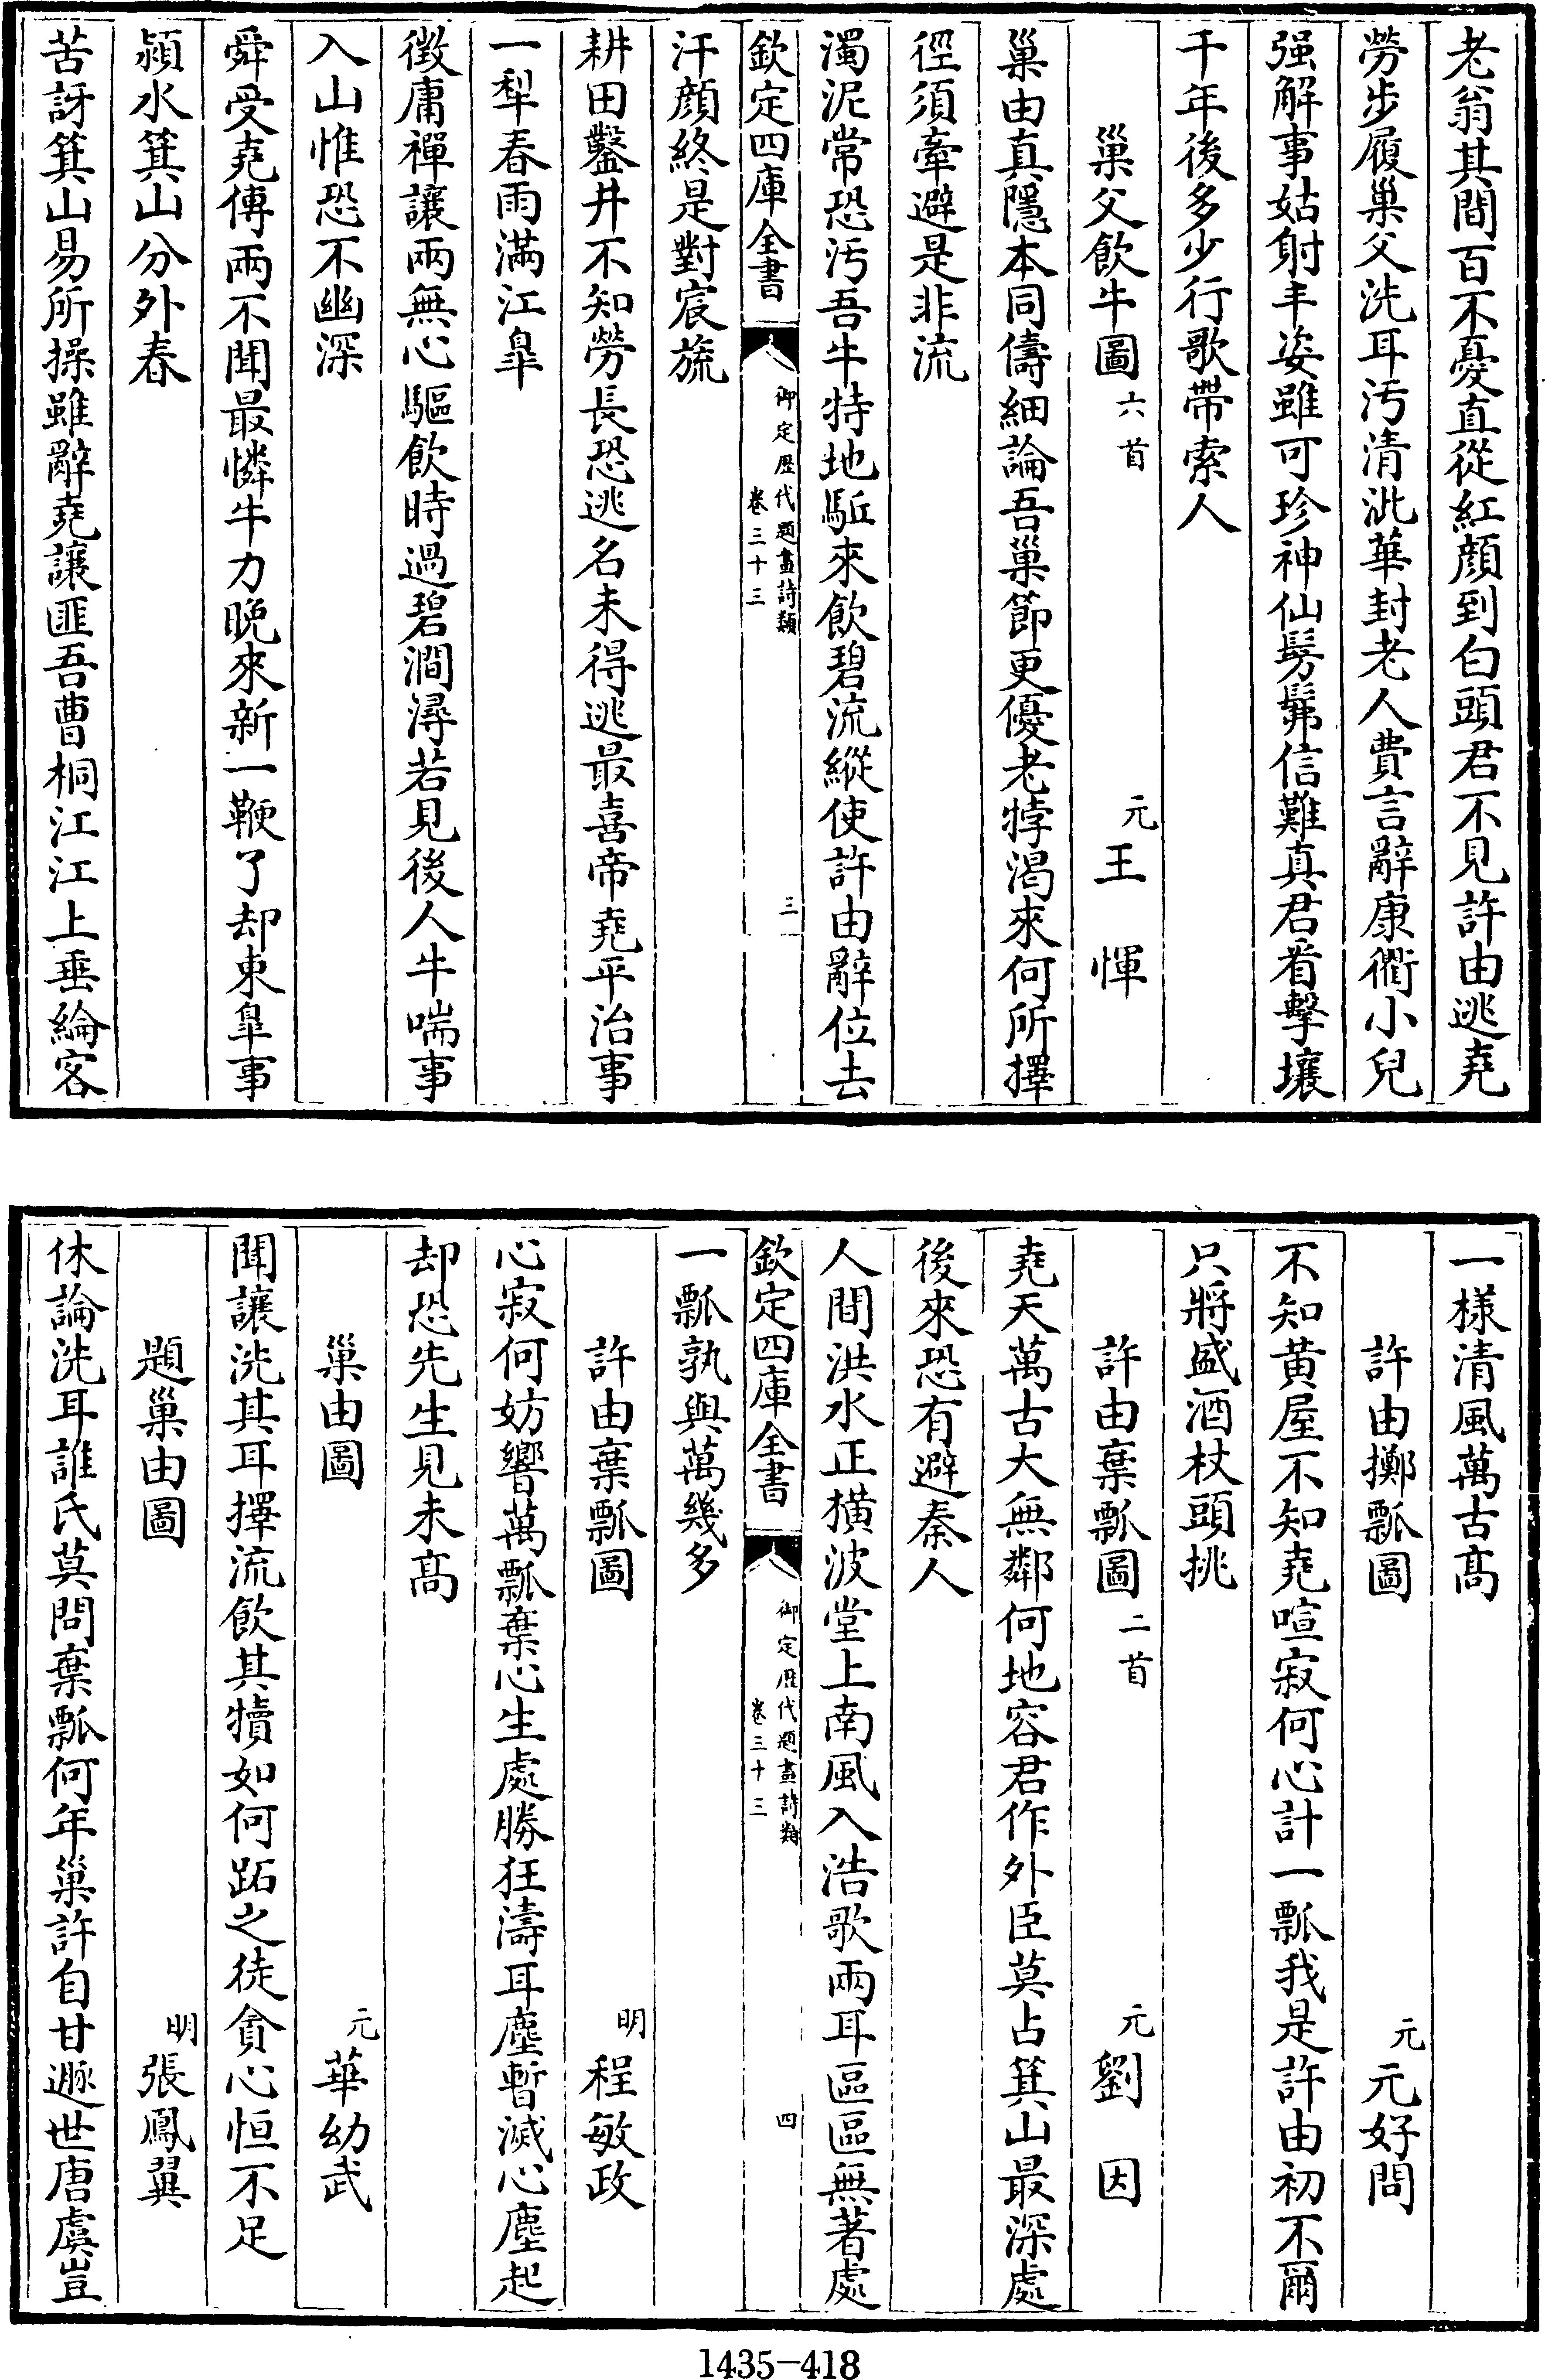 老翁其間百不憂直從紅顔到白頭君不見許由逃堯
勞步履巢父洗耳汚清泚華封老人費言辭康衢小兒
强解事姑射丰姿雖可珍神仙髣髴信難真君看擊壤
千年後多少行歌帶索人
巢父飲牛圖六首 元王惲
巢由真隱本同儔細論吾巢節更優老牸渴來何所擇
徑須牽避是非流
濁泥常恐汚吾牛特地駈來飲碧流縱使許由辭位去
欽定四庫全書 御定歴代題畫詩類 卷三十三 三
汗顔終是對宸旒
耕田鑿井不知勞長恐逃名未得逃最喜帝堯平治事
一犁春雨滿江臯
徴庸禪讓兩無心驅飲時過碧澗潯若見後人牛喘事
入山惟恐不幽深
舜受堯傳兩不聞最憐牛力晚來新一鞭了却東臯事
潁水箕山分外春
苦訝箕山易所操雖辭堯讓匪吾曹桐江江上垂綸客
一樣清風萬古髙
許由擲瓢圖 元元好問
不知黄屋不知堯喧寂何心計一瓢我是許由初不爾
只將盛酒杖頭挑
許由棄瓢圖二首 元劉因
堯天萬古大無鄰何地容君作外臣莫占箕山最深處
後來恐有避秦人
人間洪水正横波堂上南風入浩歌兩耳區區無著處
欽定四庫全書 御定歴代題畫詩類 卷三十三 四
一瓢孰與萬幾多
許由棄瓢圖 明程敏政
心寂何妨響萬瓢棄心生處勝狂濤耳塵暫滅心塵起
却恐先生見未髙
巢由圖 元華幼武
聞讓洗其耳擇流飲其犢如何跖之徒貪心恒不足
題巢由圖 明張鳳翼
休論洗耳誰氏莫問棄瓢何年巢許自甘遯世唐虞豈
1435-418